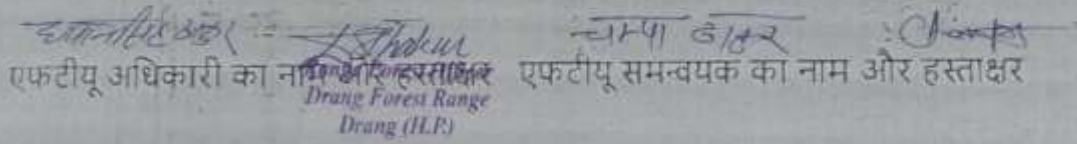 चम्पा ठाकुर
एफटीयू अधिकारी का नाम और हस्ताक्षर एफटीयू समन्वयक का नाम और हस्ताक्षर
Drang Forest Range
Drang (H.P.)